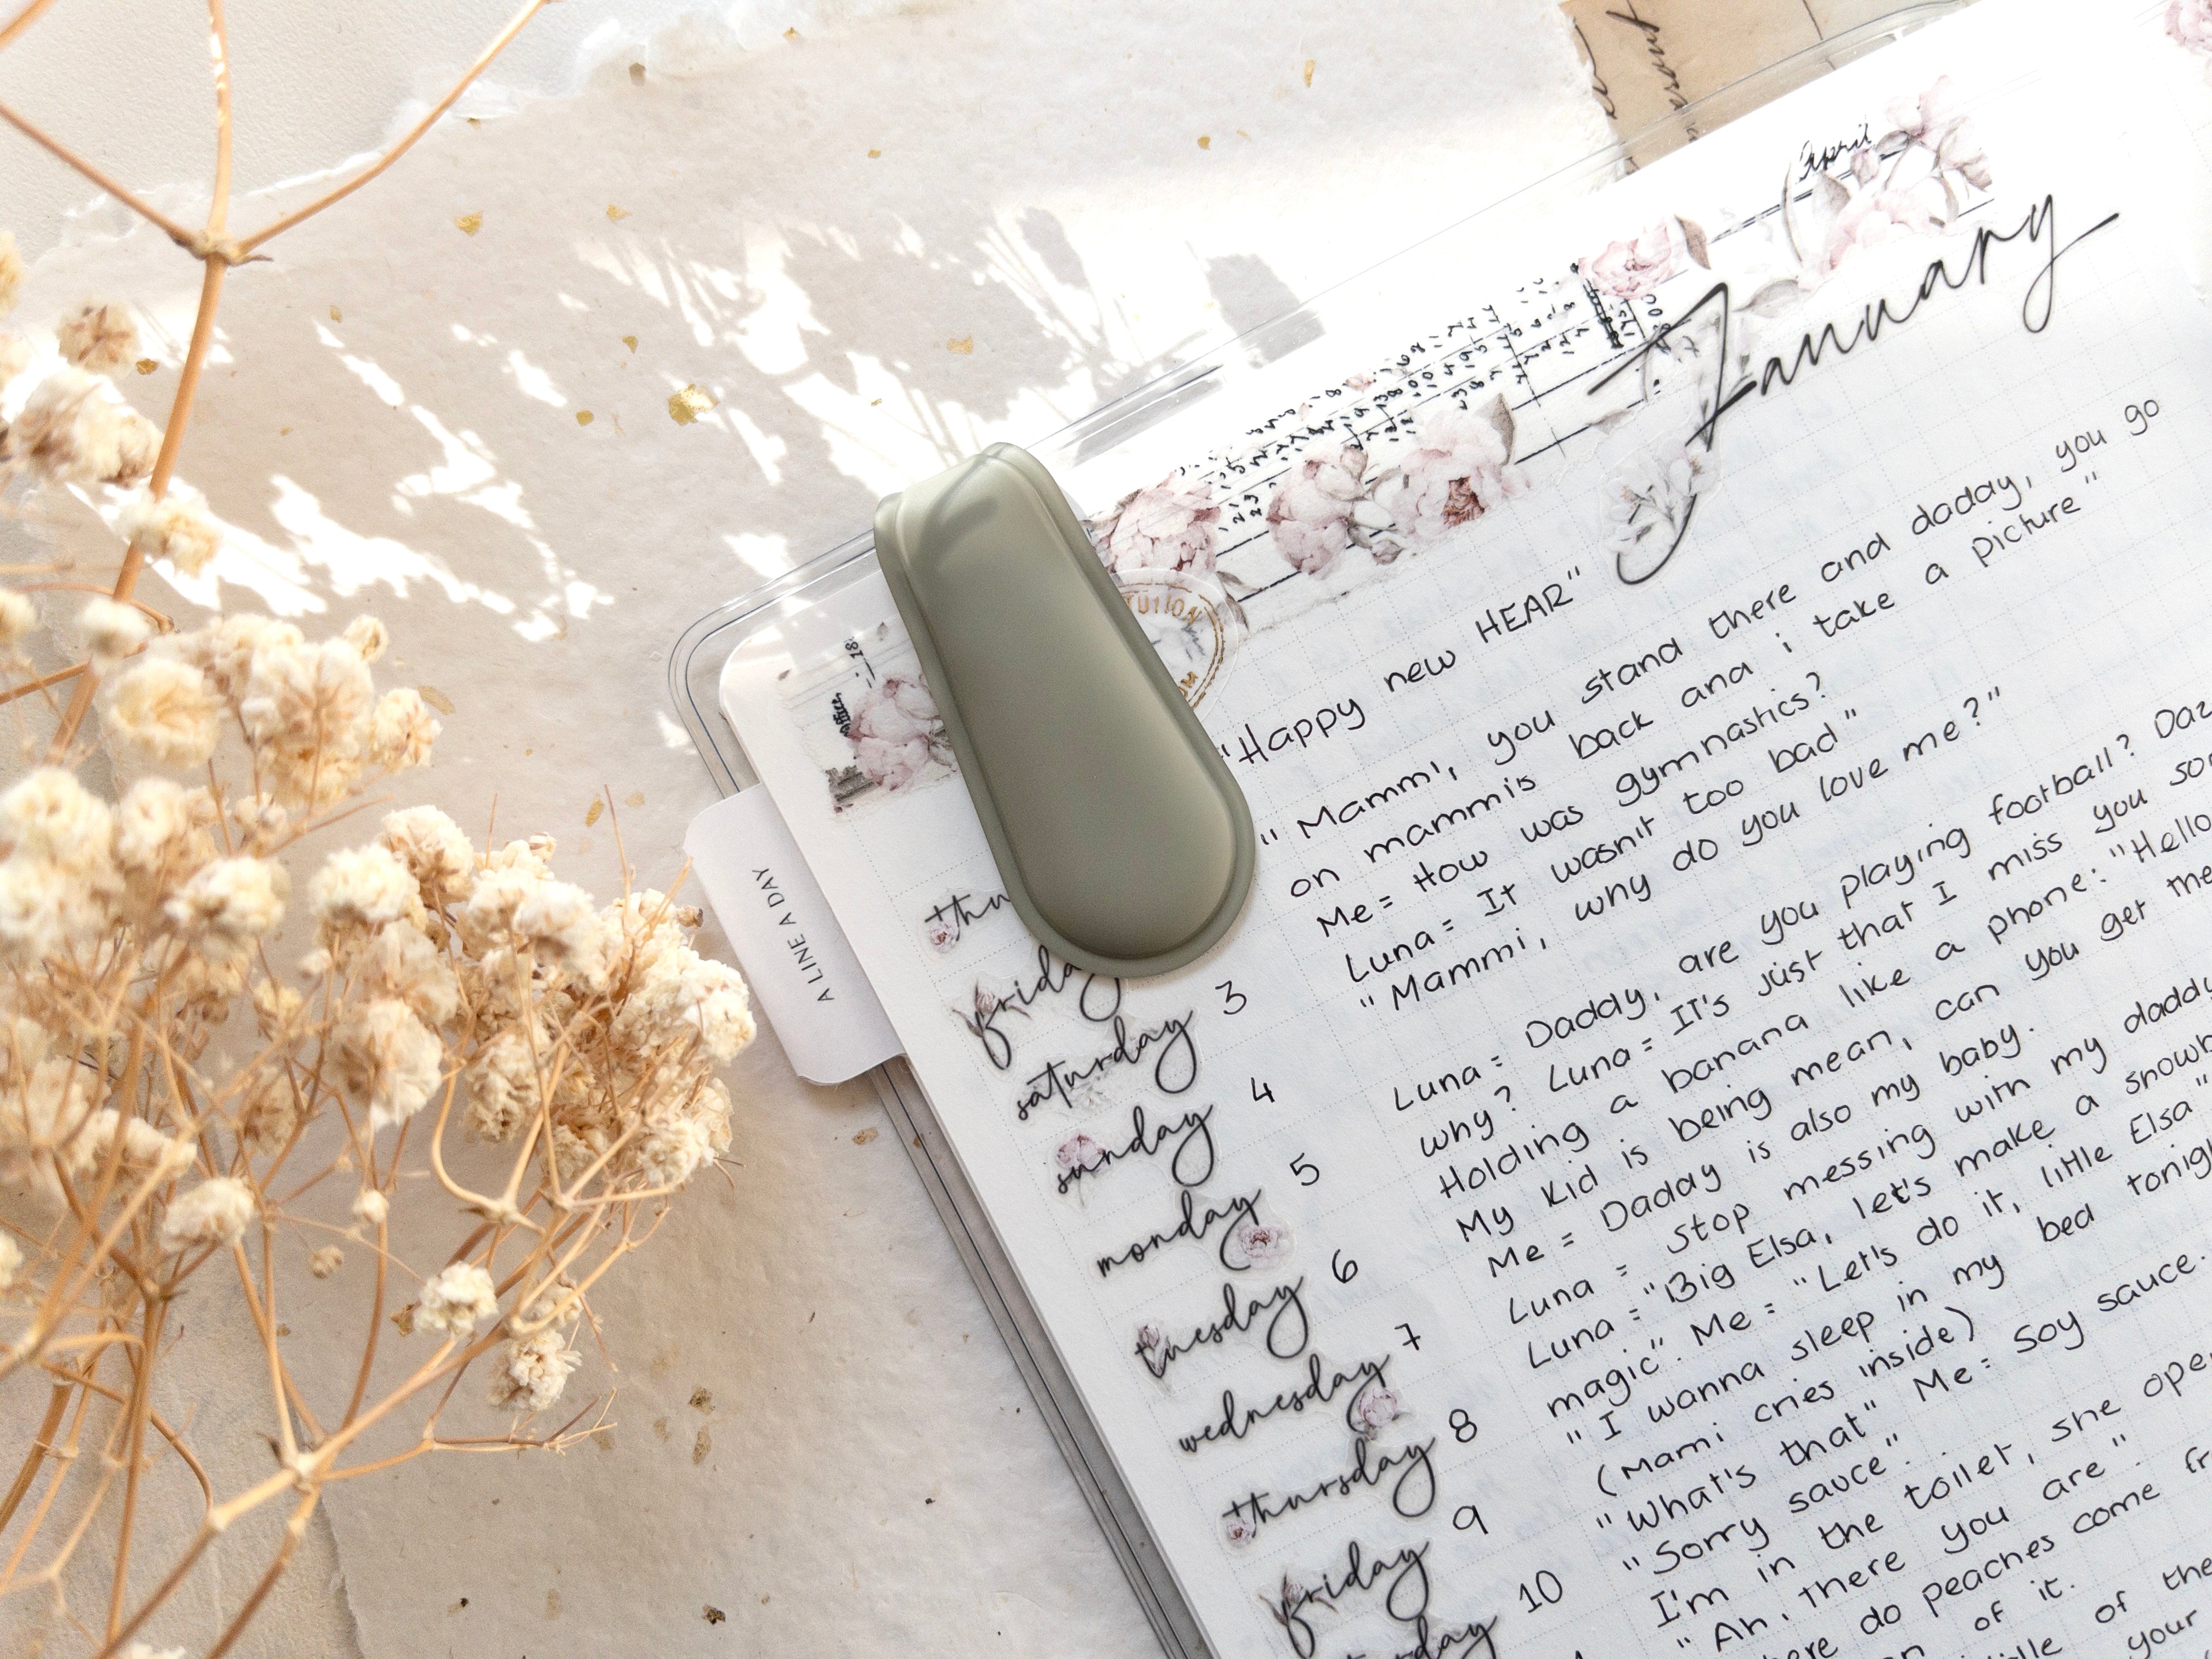 April
January
"Happy new HEAR"
"Mammi, you stand there and daday, you go
on mammis back and i take a picture"
Me= How was gymnastics?
Luna= It wasn't too bad"
"Mammi, why do you love me?"
Luna= Daddy, are you playing football?
why? Luna= It's just that I miss you
Holding a banana like a phone: "Hello
My kid is being mean, can you get
Me= Daddy is also my baby.
Luna= Stop messing with my daddy
Luna="Big Elsa, let's make a
magic". Me= "Let's do it, little Elsa"
"I wanna sleep in my bed
(Mami cries inside)
"What's that" Me= Soy sauce.
"Sorry sauce".
I'm in the toilet, she
"Ah, there you are".
do peaches come
of it.
of the
your
A LINE A DAY
friday
saturday 3
sunday 4
monday 5
tuesday 6
wednesday 7
thursday 8
friday 9
10